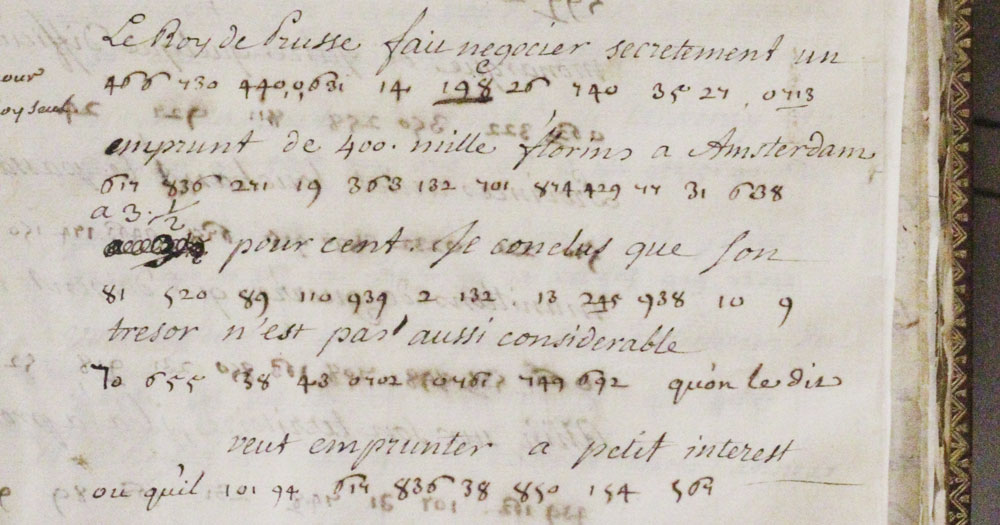 Le Roy de Prusse fait negocier secretement un
our
466 730 440,0631 14 148 26 740 35 27 0713
oy seul
emprunt de 400. mille florins a Amsterdam
617 836 271 19 363 132 701 874 429 77 31 638
a 3. 1/2
pour cent. Je conclus que son
81 520 89 110 939 2 132 13 245 938 10 9
tresor n'est pas aussi considerable
70 655 38 43 0702 0761 749 692 qu'on le dit
veut emprunter a petit interest
ou qu'il 101 94 617 836 38 850 154 567